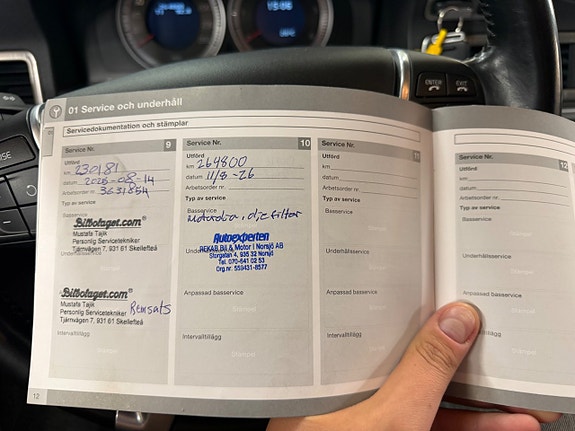 15:06
ENTER
EXIT
01 Service och underhåll
Servicedokumentation och stämplar
Service Nr. 9
Utförd
km 230181
datum 2025-08-14
Arbetsorder nr. 3631854
Typ av service
Basservice
Bilbolaget.com®
Mustafa Tajik
Personlig Servicetekniker
Tjärnvägen 7, 931 61 Skellefteå
Underhållsservice
Stämpel
Bilbolaget.com®
Mustafa Tajik
Personlig Servicetekniker Remsats
Tjärnvägen 7, 931 61 Skellefteå
Intervalltillägg
Stämpel
12
Service Nr. 10
Utförd
km 264800
datum 11/5-26
Arbetsorder nr.
Typ av service
Basservice
Motorolja, olje filter
Autoexperten
REKAB Bil & Motor i Norsjö AB
Storgatan 4, 935 32 Norsjö
Tel. 070-641 02 53
Org.nr: 559431-8577
Anpassad basservice
Stämpel
Intervalltillägg
Stämpel
Service Nr. 11
Utförd
km
datum
Arbetsorder nr.
Typ av service
Basservice
Stämpel
Underhållsservice
Stämpel
Anpassad basservice
Stämpel
Intervalltillägg
Stämpel
Service Nr. 12
Utförd
km
datum
Arbetsorder nr.
Typ av service
Basservice
Underhållsservice
Anpassad basservice
Intervalltillägg